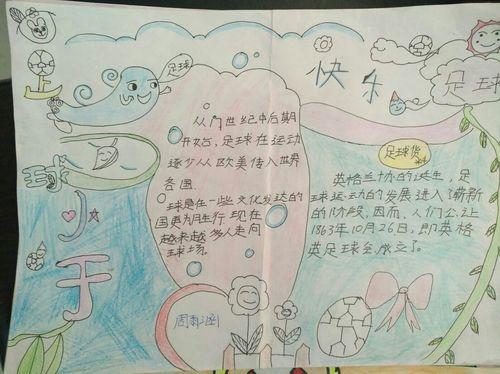 足球
小手
足球
从门世纪中后期
开始后，足球在运动
逐少从欧美传入世界
各国
球是在一些文化发达的
国更为月生行，现在
越来越多人走向
球场。
周
快乐
足球
足球货
英格兰协的诞生，足
球运动的发展进入了崭新
的阶段，因而，人们公让
1863年10月26日，即英格
英足球会成立了。